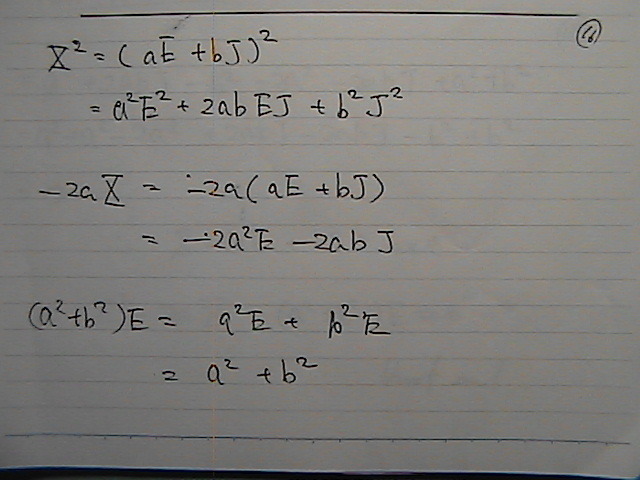 16
X² = (aE + bJ)²
= a²E² + 2ab EJ + b²J²
-2aX = -2a(aE + bJ)
= -2a²E - 2ab J
(a²+b²)E = a²E + b²E
= a² + b²